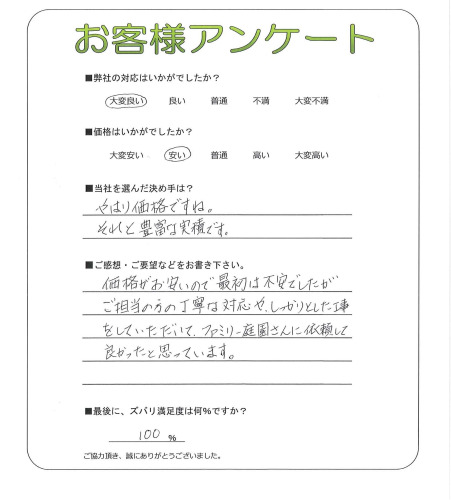 お客様アンケート
■弊社の対応はいかがでしたか?
大変良い 良い 普通 不満 大変不満
■価格はいかがでしたか?
大変安い 安い 普通 高い 大変高い
■当社を選んだ決め手は?
やはり価格ですね。
それと豊富な実積です。
■ご感想・ご要望などをお書き下さい。
価格がお安いので最初は不安でしたが
ご担当の方の丁寧な対応や、しっかりとした工事
をしていただいて、ファミリー庭園さんに依頼して
良かったと思っています。
■最後に、ズバリ満足度は何%ですか?
100 %
ご協力頂き、誠にありがとうございました。